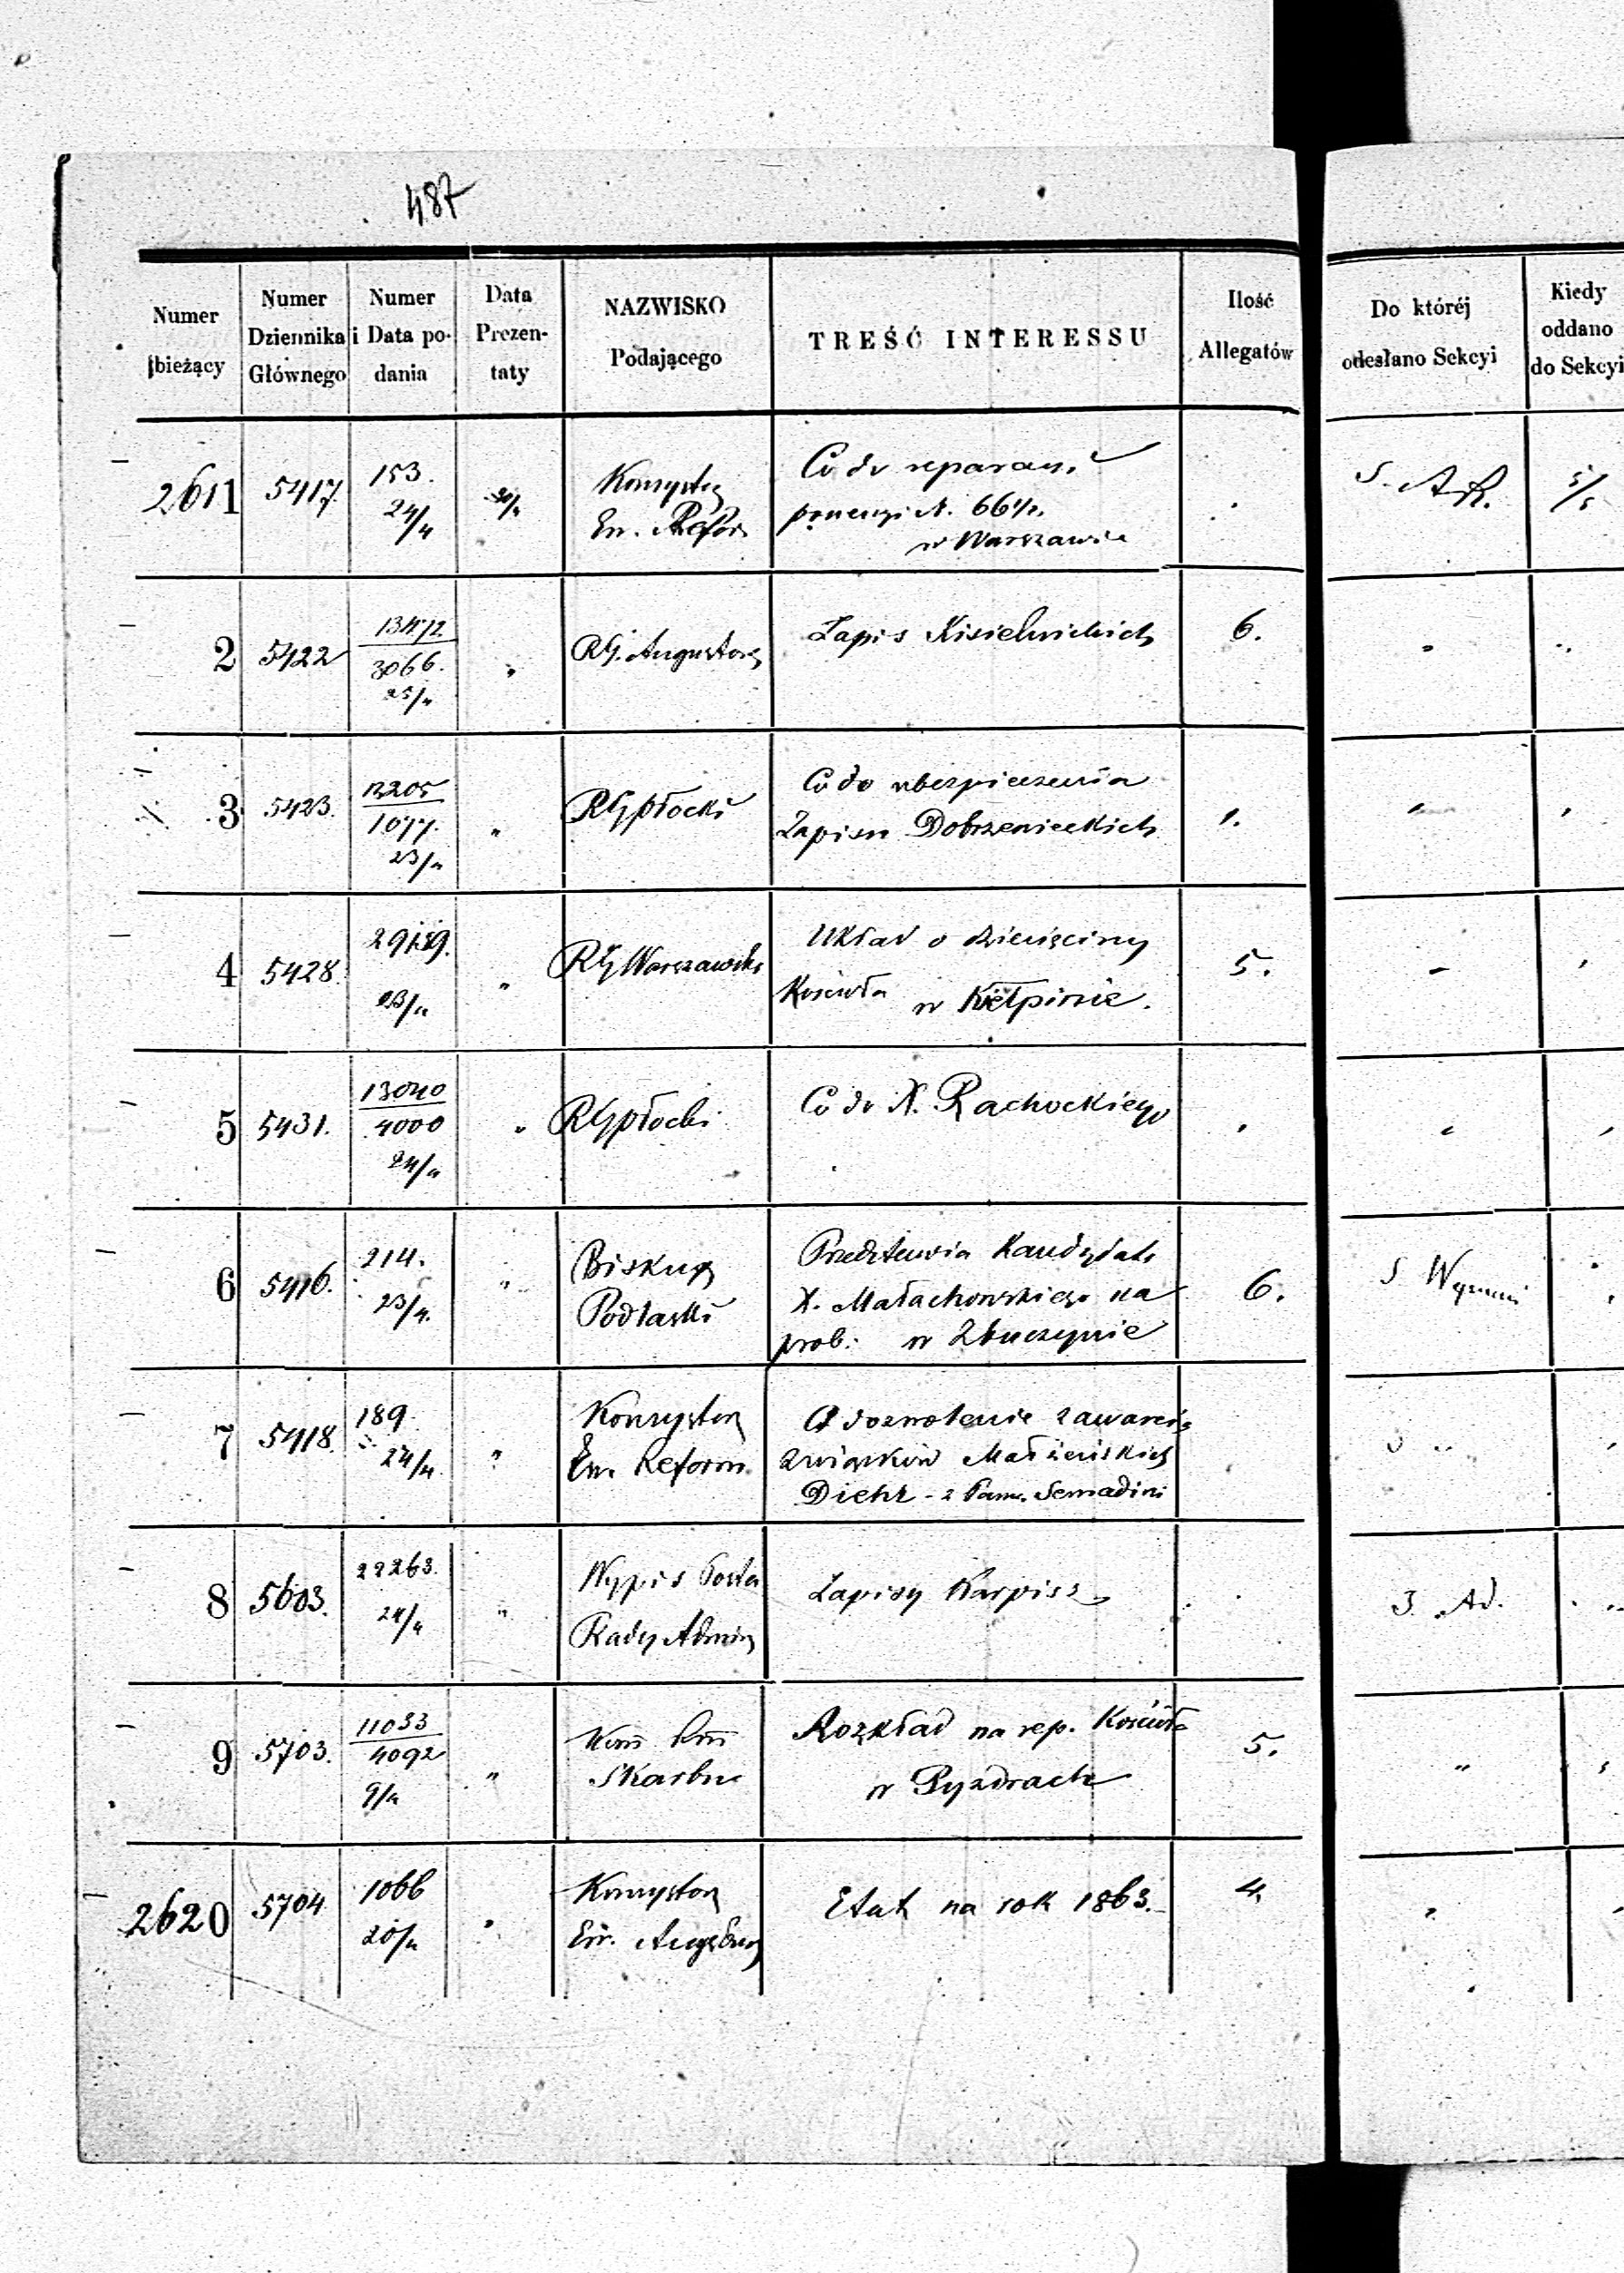 487
Numer bieżący
Numer Dziennika Głównego
Numer i Data podania
Data Prezentaty
NAZWISKO Podającego
TREŚĆ INTERESSU
Ilość Allegatów
Do któréj odesłano Sekcyi
Kiedy oddano do Sekcyi
2611 5417. 153. 24/4 Konsystorz Co do reparacyi
Ew. Refor. w Warszawie
5/5
2 5422 3066. 25/4 " RG. Augustow Zapis Kisielnickich 6. "
3 5423. 13205 1077. 23/4 " RG Płocki Co do ubezpieczenia 1. "
Zapisu Dobrzenieckich
4 5428. 23/4 " RG Warszawski Układ o dziesięciny 5. "
Kościoła w Kiełpinie.
5 5431. 13040 4000 24/4 " RG Płocki Co do X. Rachockiego "
6 5416. 214. 23/4. " Biskup Przedstawia Kandydata 6. S Wyznań
Podlaski X. Małachowskiego na
prob: w Zbuczynie
7 5418. 189. 24/4. " Konsystorz O dozwolenie zawarcia
Ew. Reform. związków Małżeńskich
Diehl - z Panną Semadini
8 5603. 22263. 24/4 " Wypis Zapisy Karpisz Ad.
Rady Admin
9 5703. 11033 4092 9/4 " Kom Rzą Rozkład na rep. Kościoła 5. "
Skarbu w Pyzdrach
2620 5704 1066 20/4 " Konsystorz Etat na rok 1863. 4. "
Ew. Augsburg